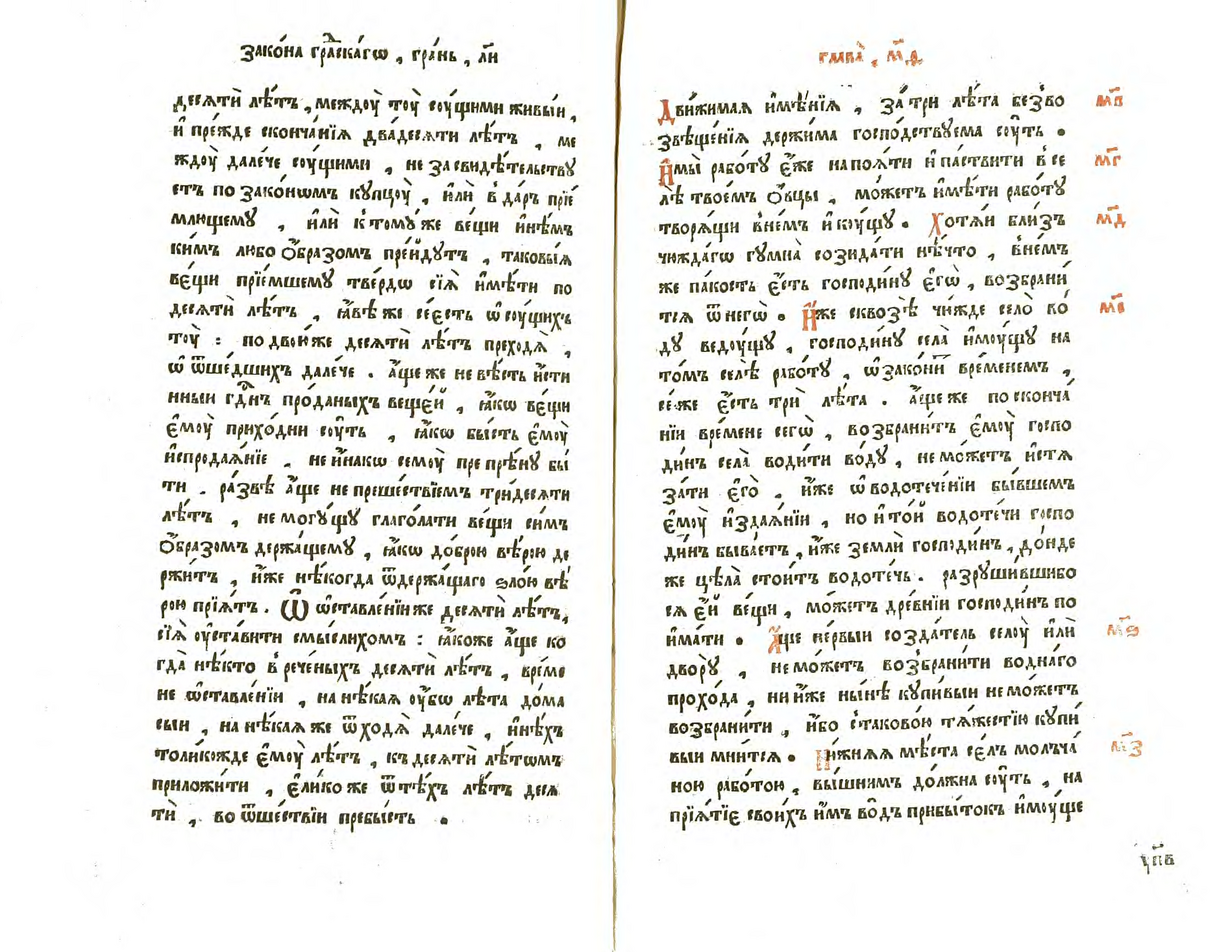 Зако́на гра́дскагѡ , гра́нь , л҃и
десѧтѝ лѣ́тъ , междоу̀ тоу̀ соу́щими живы́и ,
и҆ пре́жде сконча́нїѧ два́десѧти лѣ́тъ , ме
ждоу̀ дале́че соу́щими , не засвидѣ́тельству
етъ по зако́нѡмъ купцоу̀ , и҆лѝ в да́ръ прїе́
млющему , и҆лѝ к томꙋ́же ве́щи и҆нѣ́мъ
ки́мъ либо ѻ҆́бразомъ пре́идутъ , таковы́ѧ
ве́щи прїе́мшему тве́рдѡ сїѧ̀ и҆мѣ́ти по
десѧтѝ лѣ́тъ , ꙗ҆́вѣ же се е҆́сть ѡ҆ соу́щихъ
тоу̀ : по двои́же десѧтѝ лѣ́тъ преходѧ̀ ,
ѡ҆ ѿше́дшихъ дале́че . а҆́ще же не вѣ́сть и҆́сти
нныи гд҇нъ про́даныхъ веще́й , ꙗ҆́кѡ ве́щи
е҆моу̀ прихо́дни соу́ть , ꙗ҆́кѡ бы́сть е҆моу̀
и҆спродаѧ́нїе , не и҆на́кѡ семоу̀ препрѣ́ну бы́
ти . ра́звѣ а҆́ще не прешествїемъ три́десѧти
лѣ́тъ , не могу́щу глаго́лати ве́щи си́мъ
ѻ҆́бразомъ держа́щему , ꙗ҆́кѡ до́брою вѣ́рою де
ржи́тъ , и҆́же нѣ́когда ѿ держа́щаго ѕло́ю вѣ́
рою прїѧ́тъ . Ѡ҆ ѡ҆ставле́нїи же десѧтѝ лѣ́тъ,
сїѧ̀ оу҆ста́вити смы́слихомъ : ꙗ҆́коже а҆́ще ко
гда̀ нѣ́кто в рече́ныхъ десѧтѝ лѣ́тъ , вре́ме
не ѡ҆ставле́нїи , на нѣ́каѧ оу҆́бѡ лѣ́та до́ма
сы́и , на нѣ́каѧ же ѿходѧ̀ дале́че , и҆нѣ́хъ
толи́кожде е҆моу̀ лѣ́тъ , къ десѧтѝ лѣ́тѡмъ
приложи́ти , е҆ли́ко же ѿ тѣ́хъ лѣ́тъ десѧ
тѝ , во ѿше́ствїи пребы́сть .
глава̀ , м҃д
Дви́жимаѧ и҆мѣ̑нїѧ , за трѝ лѣ́та безво
звѣще́нїѧ держи́ма госпо́дствуема соу́ть . м҃в
И҆мы́и рабо́ту е҆́же напоѧ́ти и҆ паствити в се м҃г
лѣ̀ твое́мъ ѻ҆́вцы , мо́жетъ и҆мѣ́ти рабо́ту
творѧ́щи в не́мъ и҆ коу́щу . Хотѧ́и бли́зъ м҃д
чюжда́гѡ гумна̀ созида́ти нѣ́что , в не́мъ
же па́кость е҆́сть господи́ну е҆гѡ̀ , возбрани́
тсѧ ѿ негѡ̀ . И҆́же сквозѣ̀ чю́жде село̀ во́ м҃е
ду ведоу́щу , господи́ну села̀ и҆моу́щу на
то́мъ селѣ̀ рабо́ту , ѡ҆законѝ вре́менемъ ,
се́же е҆́сть трѝ лѣ́та . а҆́ще же по сконча́
нїи вре́мене сегѡ̀ , возбрани́тъ е҆моу̀ госпо
ди́нъ села̀ води́ти во́ду , не мо́жетъ и҆стѧ
за́ти е҆го̀ , и҆́же ѡ҆ водотече́нїи бы́вшемъ
е҆моу̀ и҆здаѧ́нїи , но и҆ то́й водоте́чи госпо
ди́нъ быва́етъ , и҆́же землѝ господи́нъ , до́нде
же цѣла̀ стои́тъ водоте́чь . разруши́вшибо
сѧ е҆́й ве́щи , мо́жетъ дре́внїи господи́нъ по
и҆ма́ти . А҆́ще пе́рвыи созда́тель селоу̀ и҆лѝ м҃ѕ
двору̀ , не мо́жетъ возбрани́ти во́днаго
прохо́да , ни и҆́же ны́нѣ купи́выи не мо́жетъ
возбрани́ти , и҆́бо с таково́ю тѧ́жестїю купи́
выи мни́тсѧ . Ни́жнѧѧ мѣ́ста се́лъ молъча́ м҃з
ною рабо́тою , вы́шнимъ до́лжна соу́ть , на
прїѧ́тїе свои́хъ и҆́мъ во́дъ прибы́токъ и҆моу́ще
у҃пв